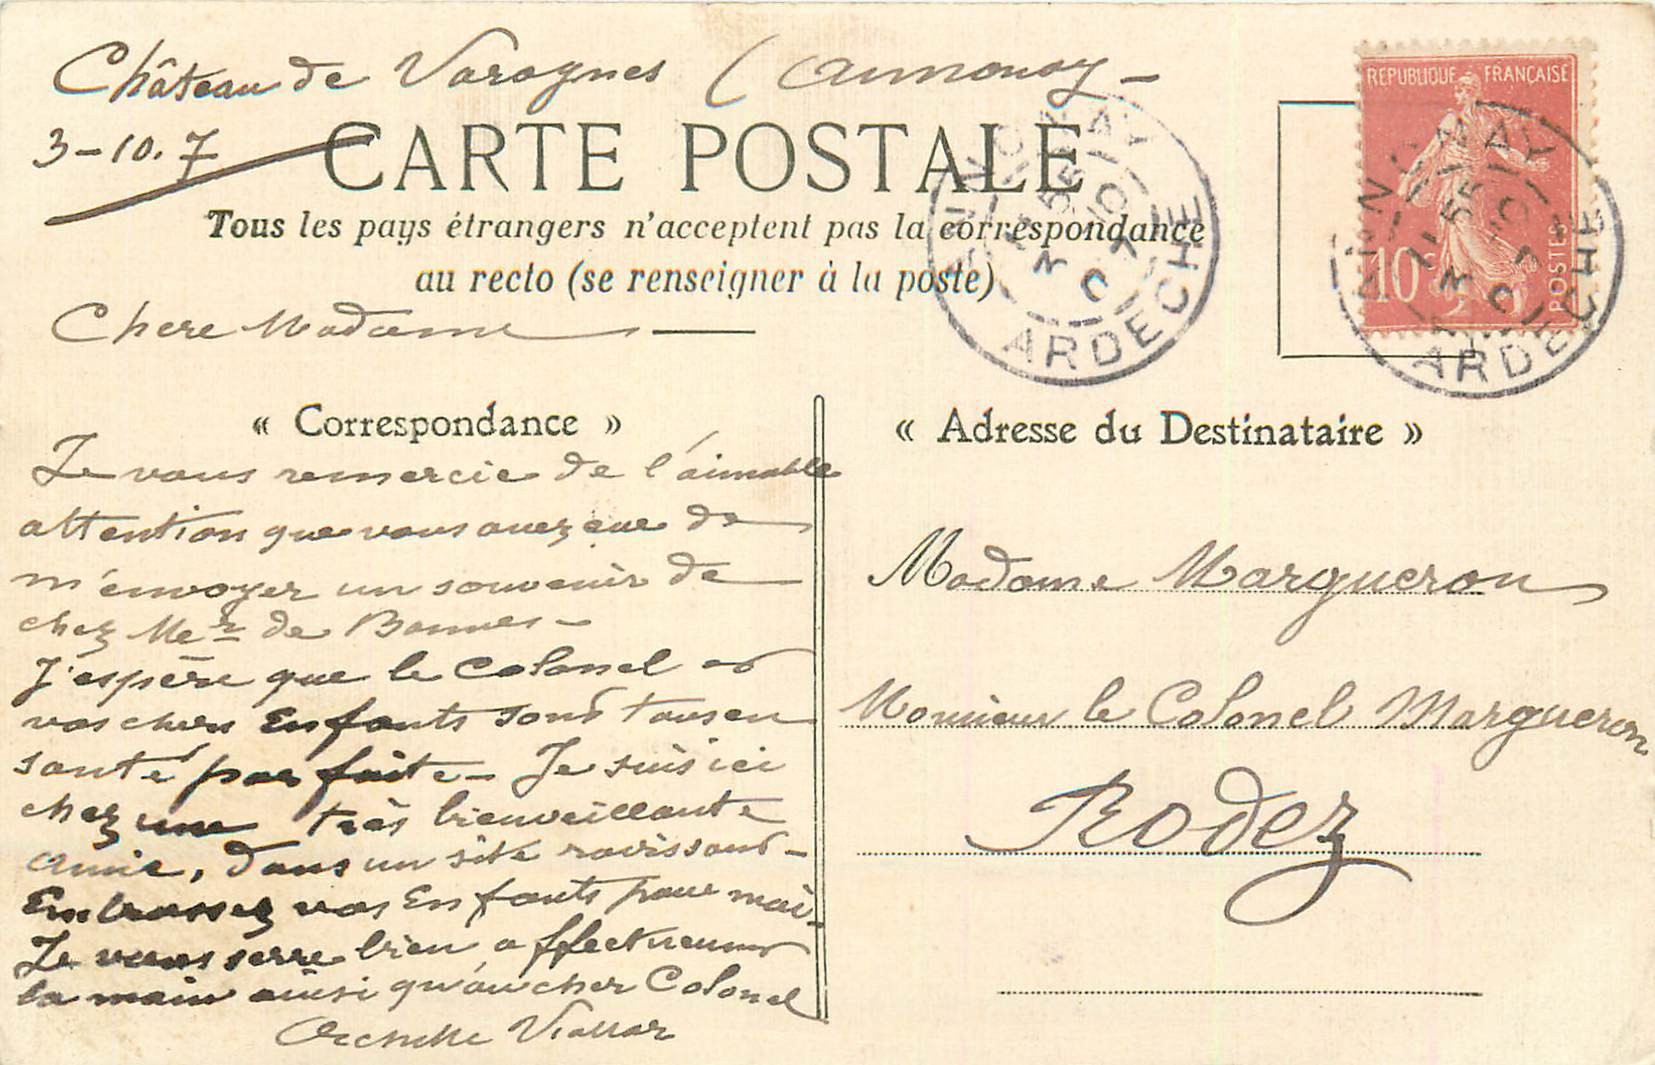 Château de Varagnes (Annonay –
3-10.7
CARTE POSTALE
Tous les pays étrangers n'acceptent pas la correspondance
au recto (se renseigner à la poste)
REPUBLIQUE FRANÇAISE
10c
POSTES
ANNONAY
11 55
3 10
07
ARDECHE
ANNONAY
11 55
3 10
07
ARDECHE
Chere Madame
« Correspondance »
Je vous remercie de l'aimable
attention que vous avez eue de
m'envoyer un souvenir de
chez Me de Bonnes –
J'espère que le Colonel et
vos chers Enfants sont tous en
santé parfaite – Je suis ici
chez une très bienveillante
amie, dans un site ravissant –
Embrassez vos Enfants pour moi –
Je vous serre bien affectueusement
la main ainsi qu'au cher Colonel
Viallar
« Adresse du Destinataire »
Madame Margueron
Monsieur le Colonel Margueron
Rodez